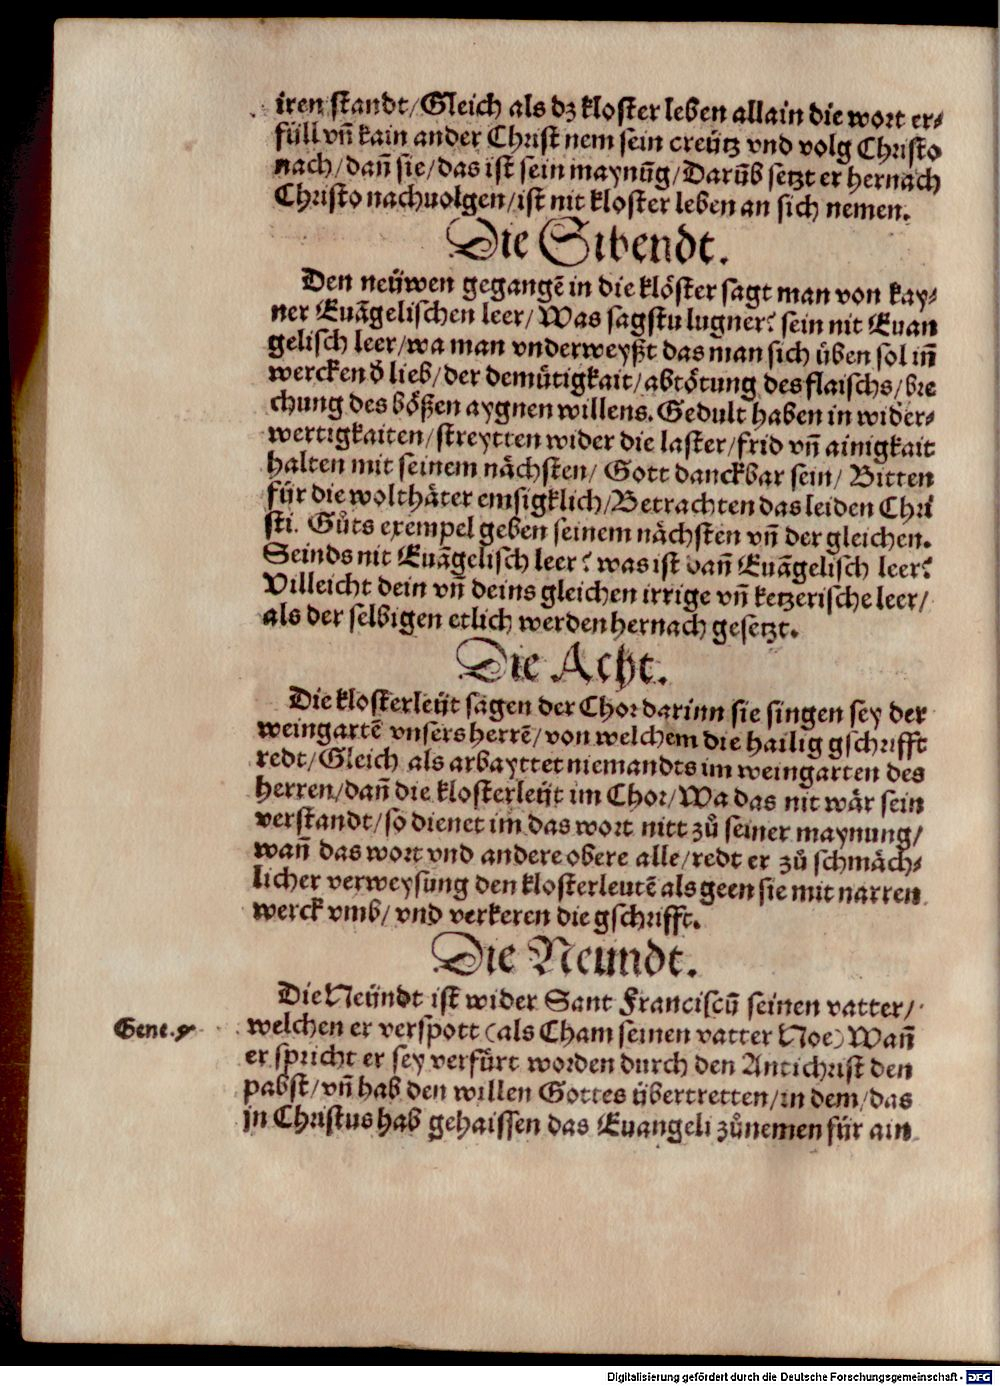 iren standt/Gleich als dz kloster leben allain die wort er⸗
füll vñ kain ander Christ nem sein creütz vnd volg Christo
nach/dañ sie/das ist sein maynũg/Darũb setzt er hernach
Christo nachuolgen/ist nit kloster leben an sich nemen.
Die Sibendt.
Den neüwen gegangẽ in die klöster sagt man von kay⸗
ner Euãgelischen leer/Was sagstu lugner? sein nit Euan
gelisch leer/wa man vnderweyßt das man sich üben sol iñ
wercken d̕ lieb/der demütigkait/abtötung des flaischs/bre
chung des bößen aygnen willens. Gedult haben in wider⸗
wertigkaiten/streytten wider die laster/frid vñ ainigkait
halten mit seinem nächsten/ Gott danckbar sein/ Bitten
für die wolthäter emsigklich/Betrachten das leiden Chri
sti. Gůts exempel geben seinem nächsten vñ der gleichen.
Seinds nit Euãgelisch leer? was ist dañ Euãgelisch leer?
Villeicht dein vñ deins gleichen irrige vñ ketzerische leer/
als der selbigen etlich werden hernach gesetzt.
Die Acht.
Die klosterleüt sagen der Chor darinn sie singen sey der
weingartẽ vnsers herrẽ/von welchem die hailig gschrifft
redt/Gleich als arbayttet niemandts im weingarten des
herren/dañ die klosterleüt im Chor/Wa das nit wär sein
verstandt/so dienet im das wort nitt zů seiner maynung/
wañ das wort vnd andere obere alle/redt er zů schmäch⸗
licher verweysung den klosterleutẽ als geen sie mit narren
werck vmb/ vnd verkeren die gschrifft.
Die Neundt.
Die Neündt ist wider Sant Franciscũ seinen vatter/
Gene. 9
welchen er verspott (als Cham seinen vatter Noe) Wañ
er spricht er sey verfürt worden durch den Antichrist den
pabst/vñ hab den willen Gottes übertretten/in dem/das
jn Christus hab gehaissen das Euangeli zůnemen für ain
Digitalisierung gefördert durch die Deutsche Forschungsgemeinschaft - DFG